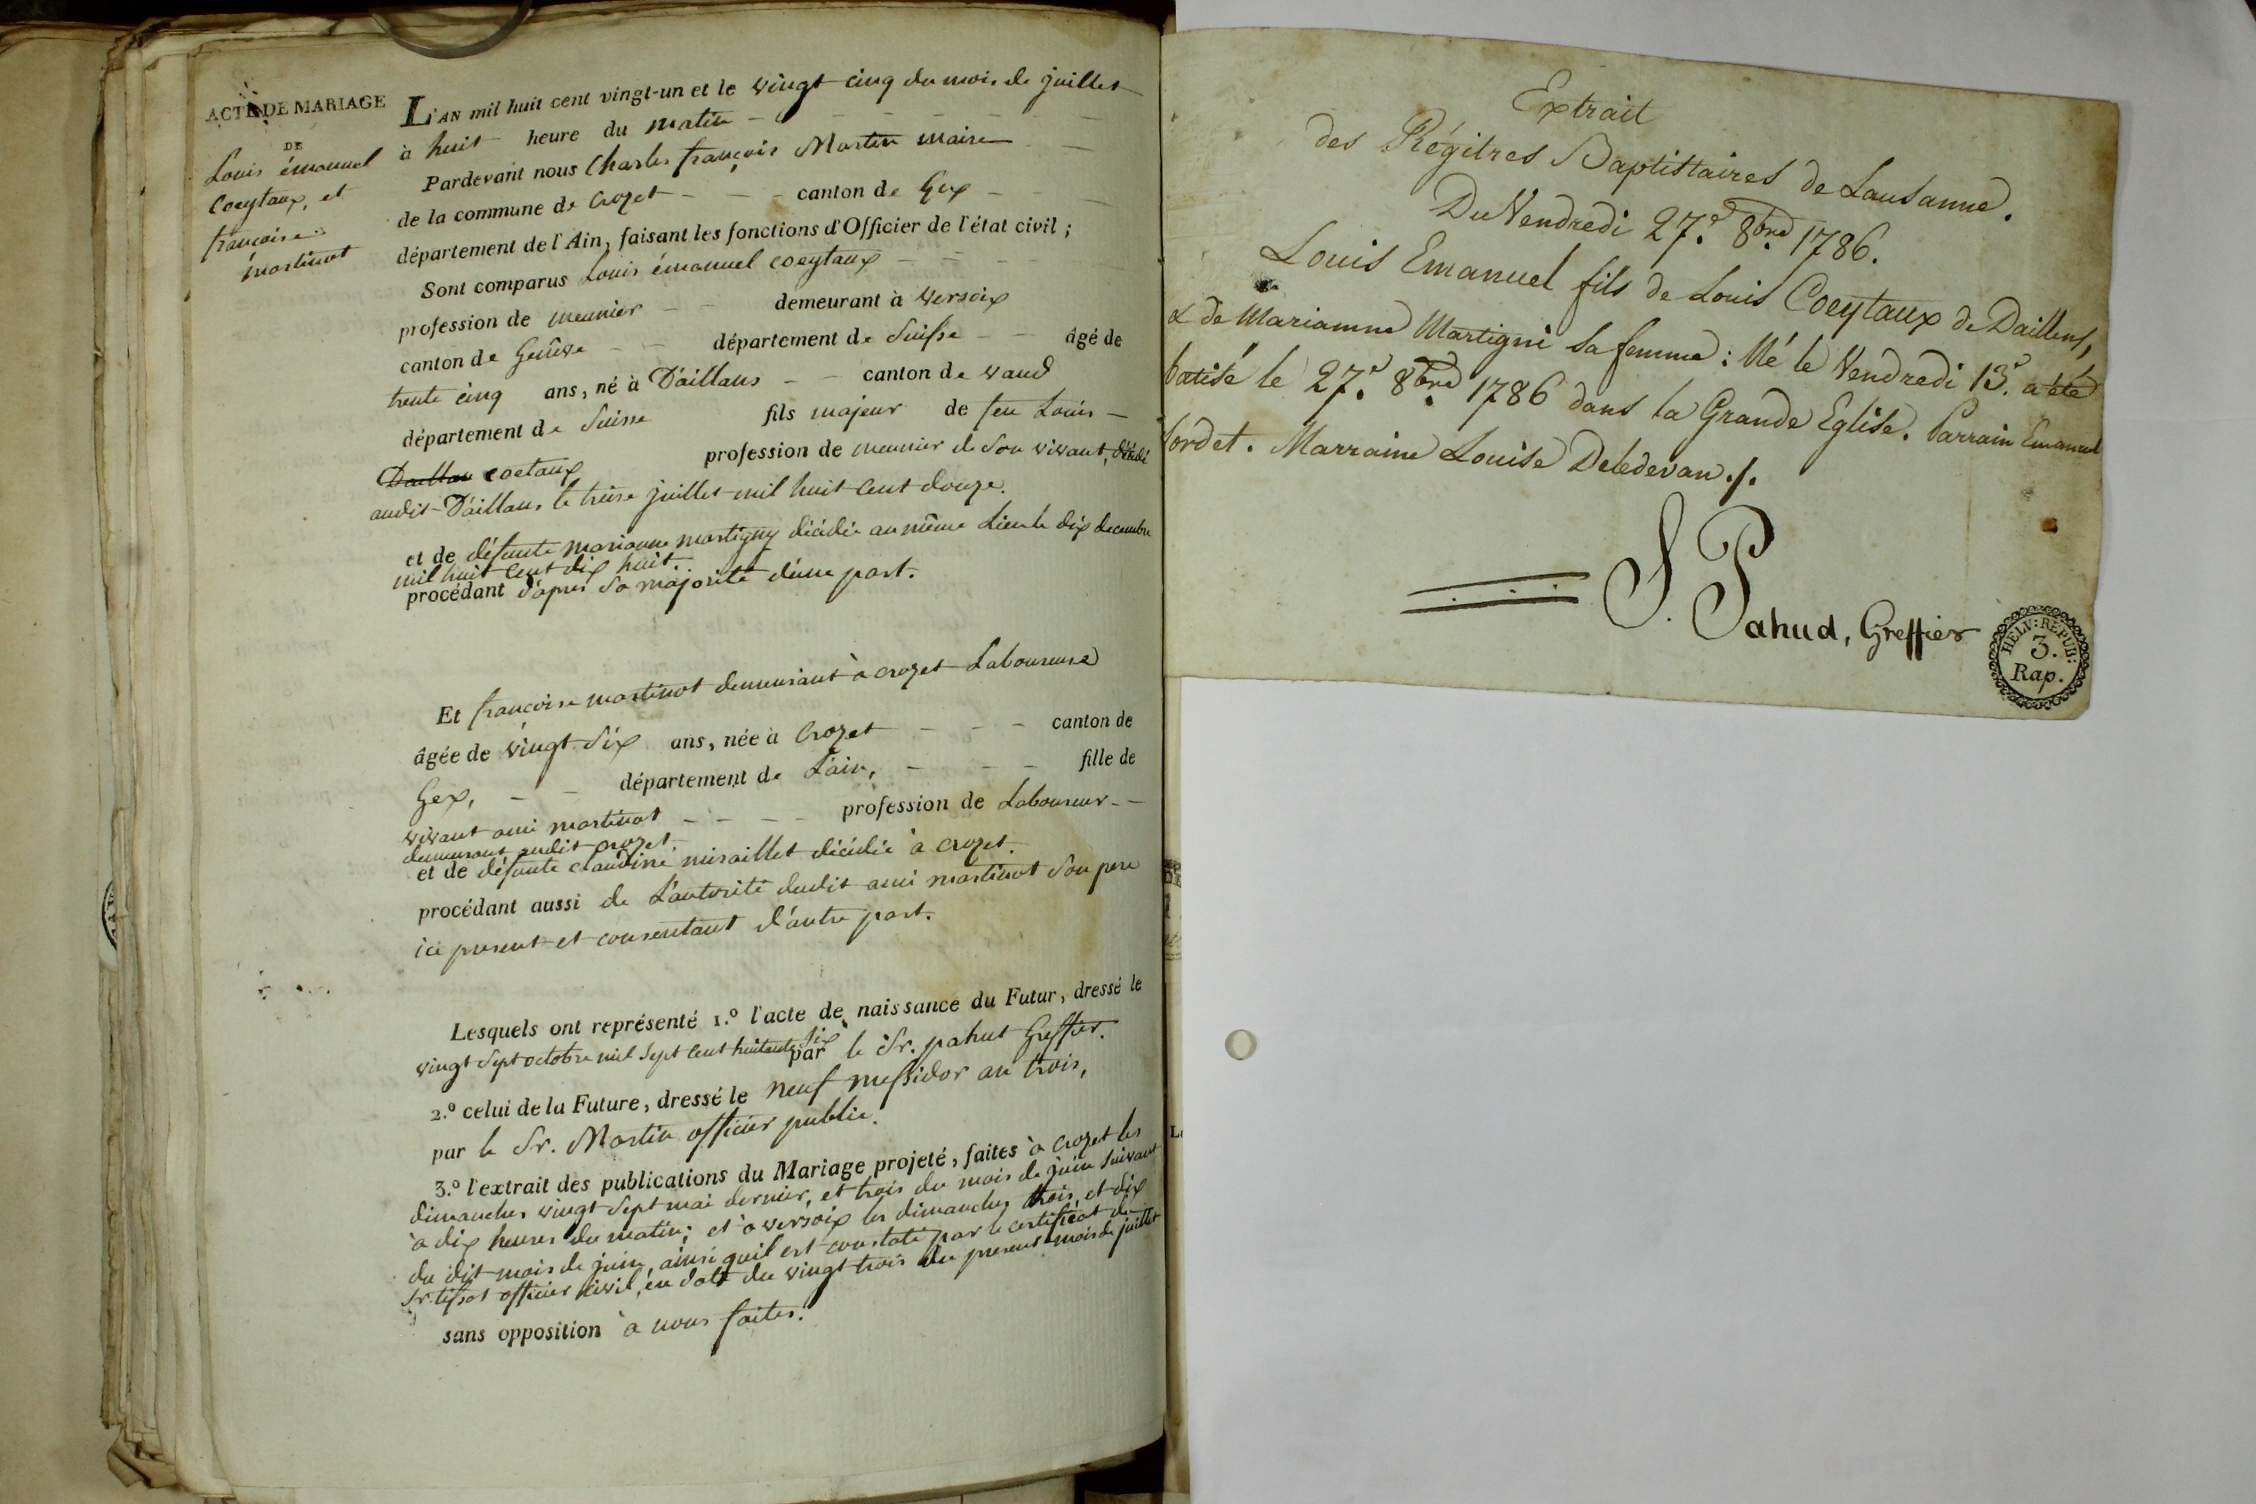 ACTE DE MARIAGE
DE
Louis émanuel
Coeytaux, et
françoise
martinot
L'AN mil huit cent vingt-un et le vingt cinq du mois de juillet
à huit heure du matin
Pardevant nous Charles françois Martin maire
de la commune de Crozet canton de Gex
département de l'Ain, faisant les fonctions d'Officier de l'état civil ;
Sont comparus Louis émanuel coeytaux
profession de meunier demeurant à versoix
canton de Genève département de Suisse âgé de
trente cinq ans, né à Daillans canton de vaud
département de Suisse fils majeur de feu Louis
Daillan coetaux profession de meunier de son vivant, décédé
audit Daillans le treise juillet mil huit cent douze.
et de défunte marianne martigny décédée au même Lieu le dix decembre
mil huit cent dix huit.
procédant d'après sa majorité d'une part.
Et françoise martinot demeurant à crozet Laboureuse
âgée de vingt six ans, née à Crozet canton de
Gex, département de L'ain, fille de
vivant ami martinot profession de Laboureur
demeurant audit crozet.
et de défunte claudine miraillet décédée à crozet.
procédant aussi de L'autorité dudit ami martinot son pere
ici present et consentant d'autre part.
Lesquels ont représenté 1.º l'acte de naissance du Futur, dressé le
vingt sept octobre mil sept cent huitante six par le Sr. pahut Greffier.
2.º celui de la Future, dressé le neuf messidor an trois,
par le Sr. Martin officier public.
3.º l'extrait des publications du Mariage projeté, faites à Crozet les
dimanches vingt sept mai dernier, et trois du mois de juin suivant
à dix heures du matin; et à versoix les dimanches trois, et dix
du dit mois de juin, ainsi quil est constaté par le certificat du
Sr. tissot officier civil, en date du vingt trois du present mois de juillet
sans opposition à nous faites.
Extrait
des Régitres Baptistaires de Lausanne.
Du Vendredi 27.e 8bre 1786.
Louis Emanuel fils de Louis Coeytaux de Daillens,
& de Marianne Martigni sa femme : Né le Vendredi 13.e a été
batisé le 27.e 8bre 1786 dans la Grande Eglise. Parrain Emanuel
Cordet. Marraine Louise Deledevan ./.
S. Pahud, Greffier
HELV: REPUB:
3.
Rap.